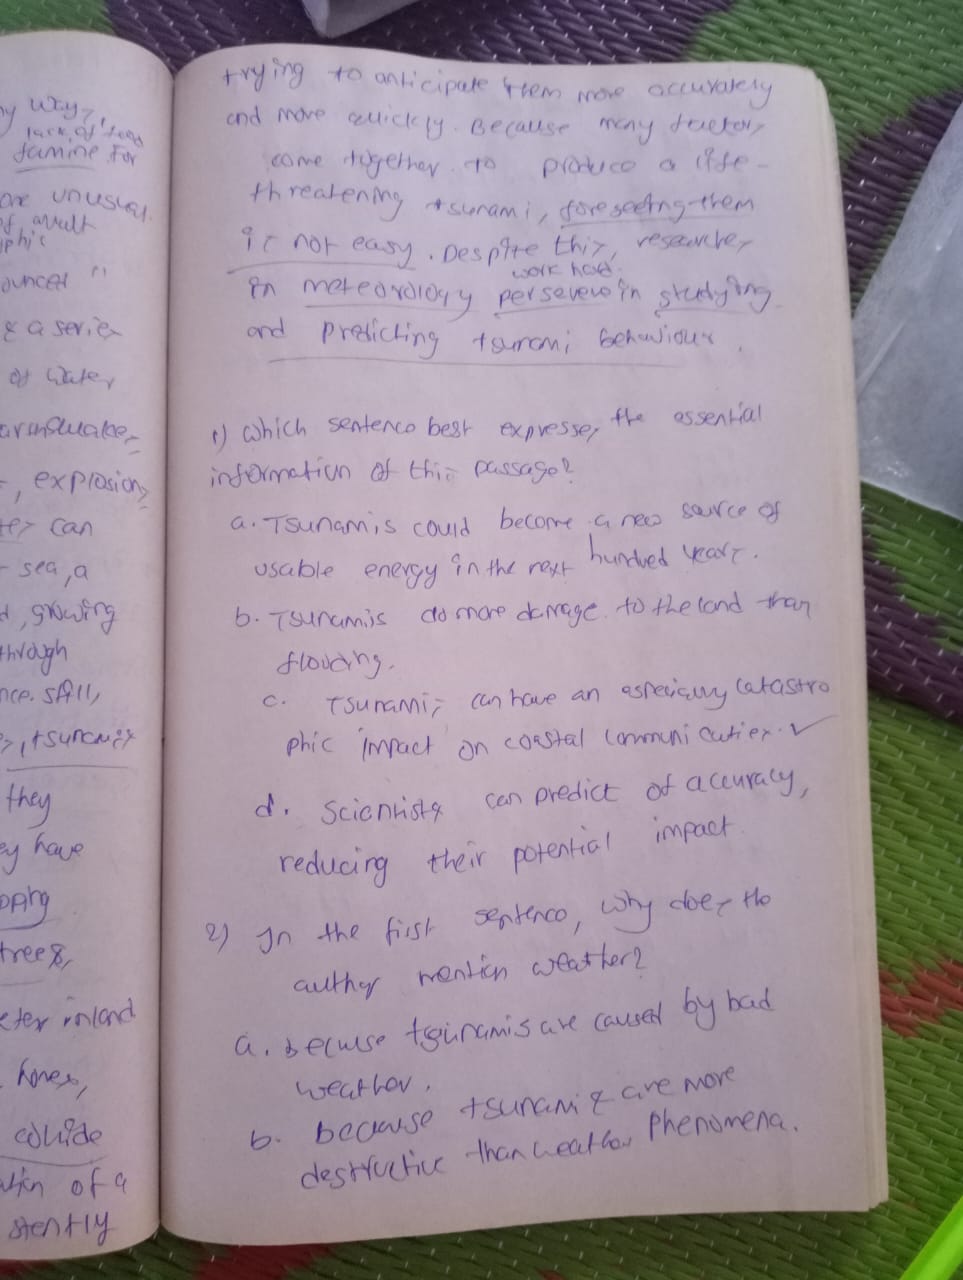 ny way,
lack of food
famine for
are unusual
of
phic
ounced"
& a series
of water
, explosions
can
sea, a
d, growing
through
nce. still,
, tsunamis
they
ey have
pping
trees,
eter inland
homes,
collide
ation of a
stently
trying to anticipate them more accurately
and more quickly. Because many factors
come together to produce a life-
threatening tsunami, foreseeing them
is not easy. Despite this, researches
work hard.
in meteorology persevere in studying
and predicting tsunami behaviour.
1) which sentence best expresses the essential
information of this passage?
a. Tsunamis could become a new source of
usable energy in the next hundred years.
b. Tsunamis do more damage to the land than
flooding.
c. Tsunamis can have an especially catastro
phic impact on coastal communities. ✓
d. Scientists can predict of accuracy,
reducing their potential impact
2) In the first sentence, why does the
author mention weather?
a. because tsunamis are caused by bad
weather.
b. because tsunamis are more
destructive than weather phenomena.